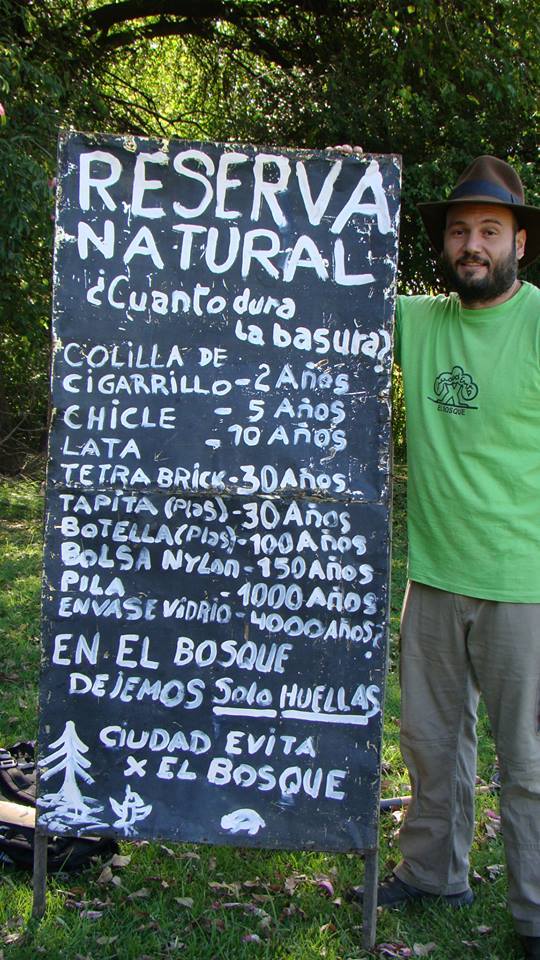 RESERVA
NATURAL
¿Cuanto dura
la basura?
COLILLA DE
CIGARRILLO - 2 Años
CHICLE - 5 Años
LATA - 10 Años
TETRA BRICK - 30 Años
TAPITA (Plas) - 30 Años
BOTELLA (Plas) - 100 Años
BOLSA NYLON - 150 Años
PILA - 1000 Años
ENVASE VIDRIO - 4000 Años?
EN EL BOSQUE
DEJEMOS Solo HUELLAS
CIUDAD EVITA
X EL BOSQUE
EL BOSQUE